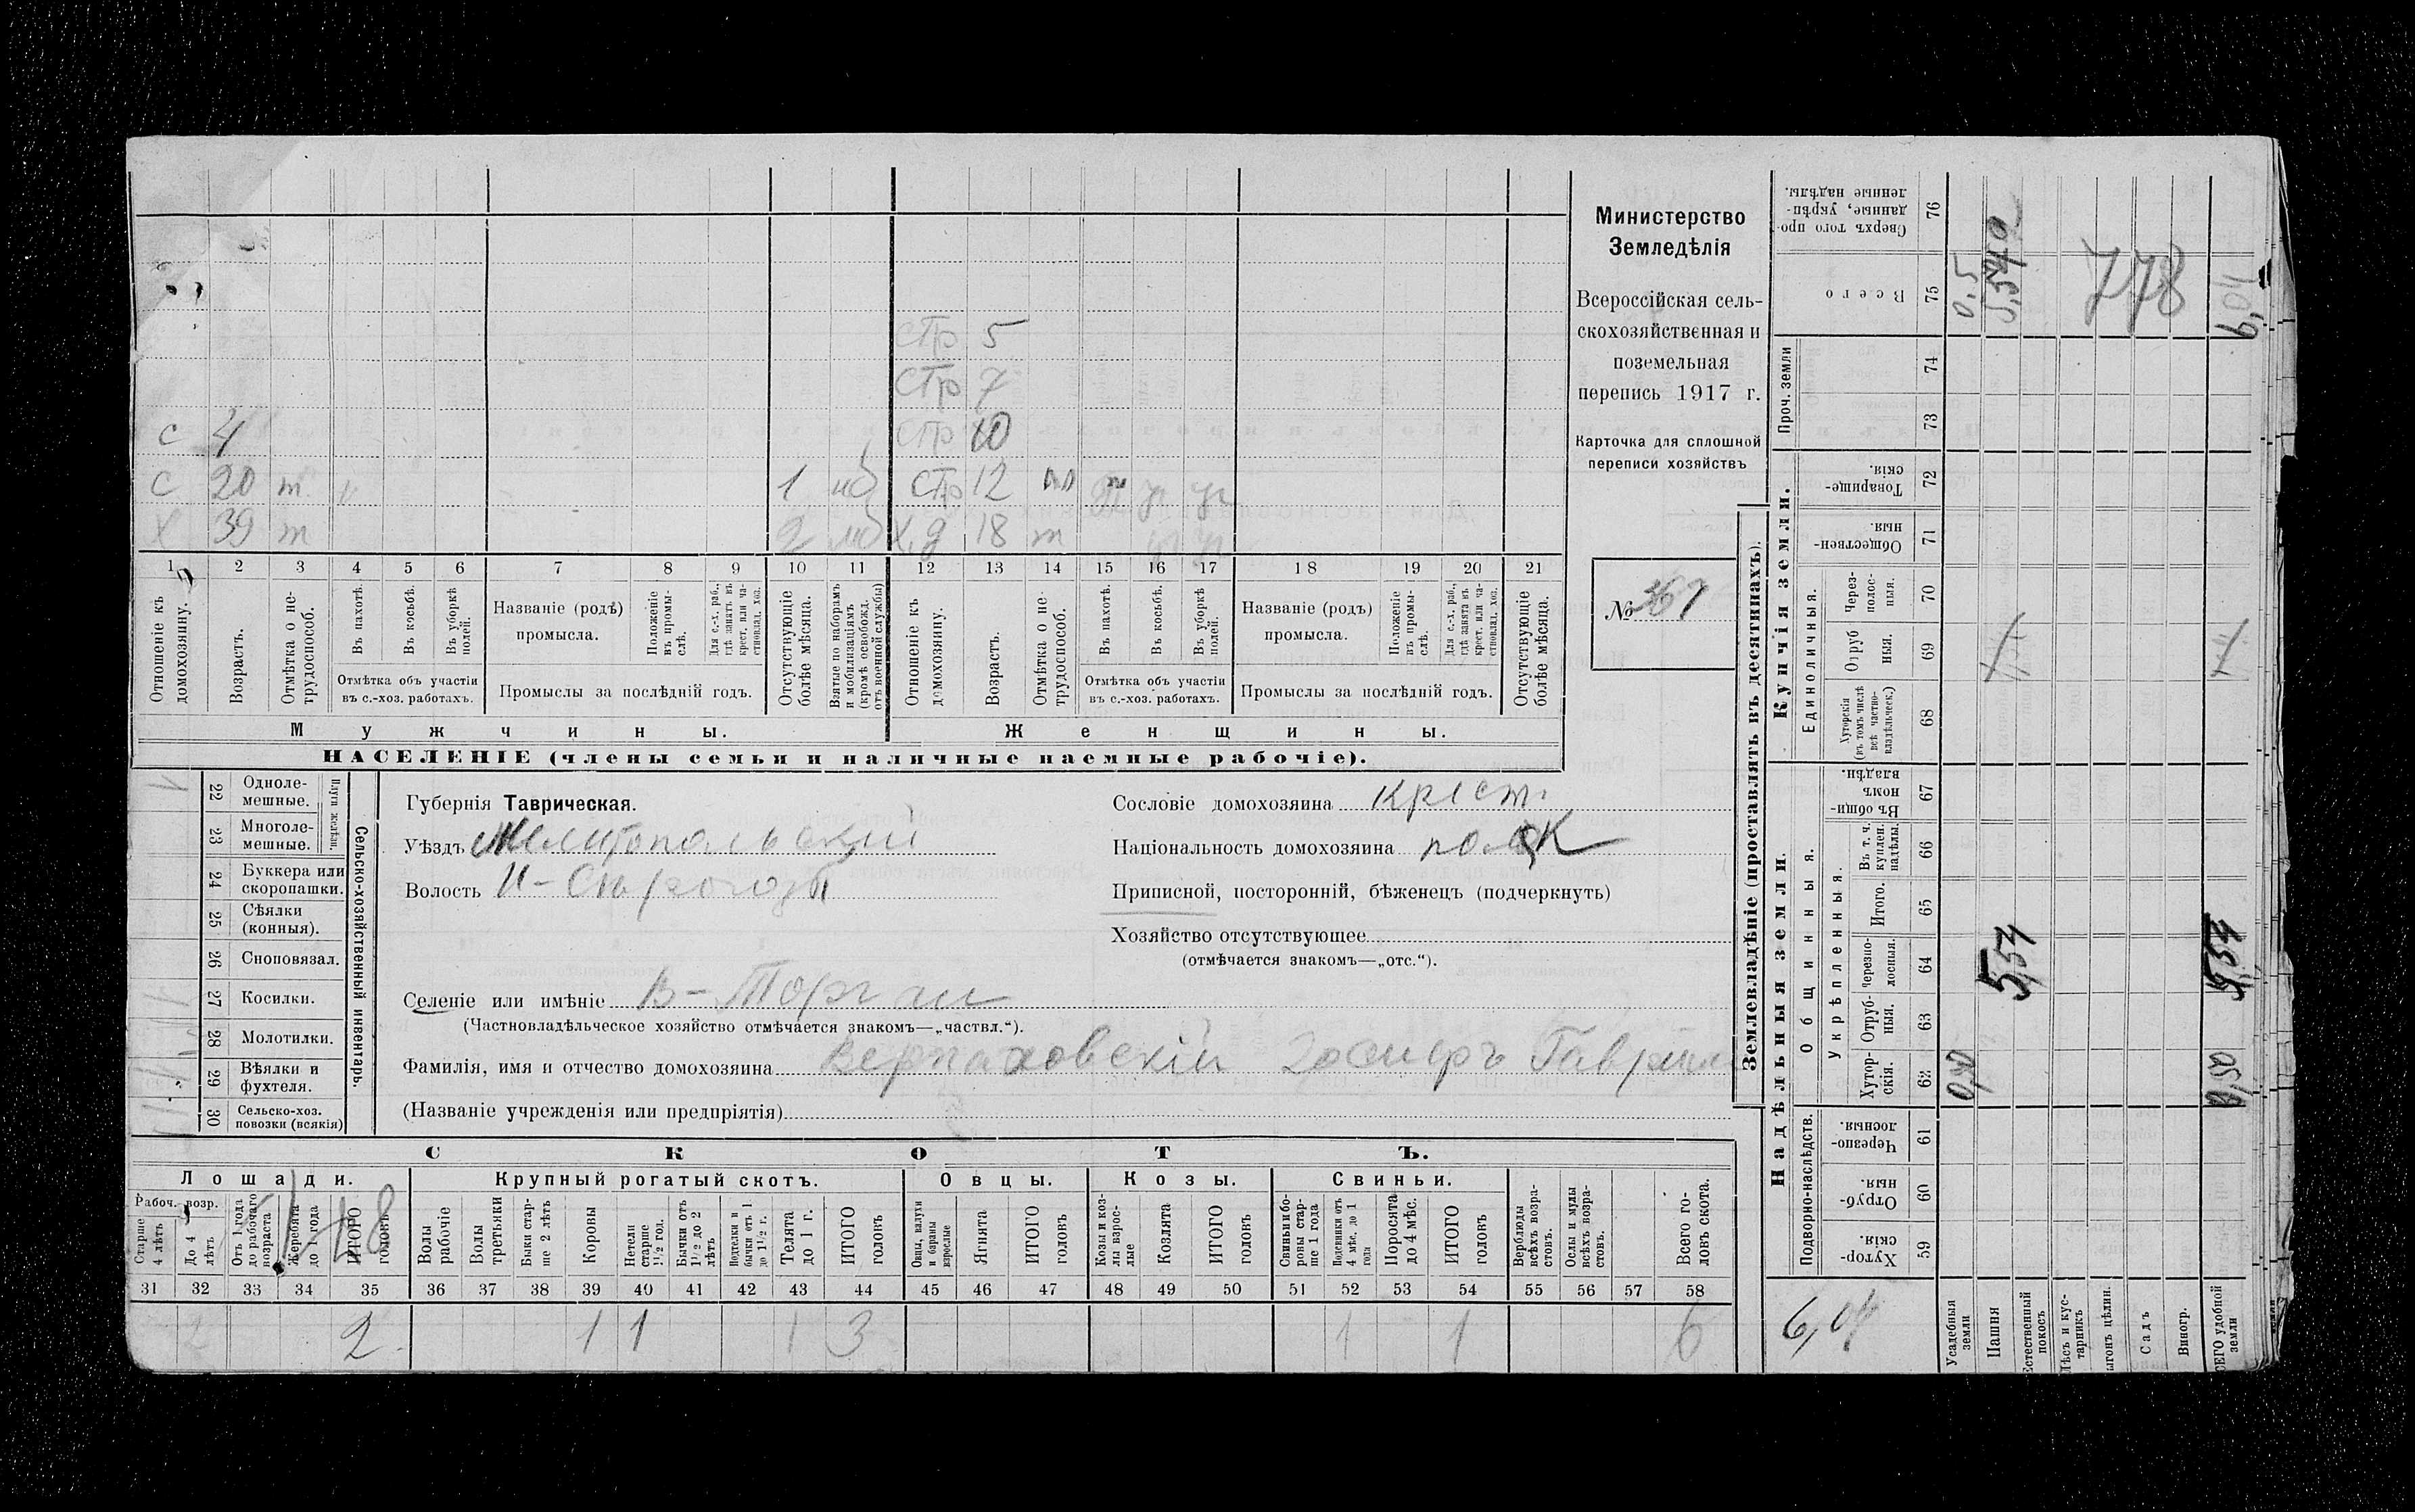 Министерство
Земледѣлія
Всероссійская сель-
скохозяйственная и
поземельная
перепись 1917 г.
Карточка для сплошной
переписи хозяйствъ
№ 367
стр 5
стр 7
с 4 стр 10
с 20 т 1 мб стр 12
х 39 т 2 мб х, д 18 т
1 2 3 4 5 6 7 8 9 10 11 12 13 14 15 16 17 18 19 20 21
Отношеніе къ домохозяину.
Возрастъ.
Отмѣтка о не-трудоспособ.
Въ пахотѣ.
Въ косьбѣ.
Въ уборкѣ полей.
Отмѣтка объ участіи въ с.-хоз. работахъ.
Названіе (родъ) промысла.
Положеніе въ промы-слѣ.
Для с.-х. раб., гдѣ занятъ въ крест. или ча-стновлад. хоз.
Промыслы за послѣдній годъ.
Отсутствующіе болѣе мѣсяца.
Взятые по наборамъ и мобилизаціямъ (кромѣ освобожд. отъ военной службы)
Отношеніе къ домохозяину.
Возрастъ.
Отмѣтка о не-трудоспособ.
Въ пахотѣ.
Въ косьбѣ.
Въ уборкѣ полей.
Отмѣтка объ участіи въ с.-хоз. работахъ.
Названіе (родъ) промысла.
Положеніе въ промы-слѣ.
Для с.-х. раб., гдѣ занята въ крест. или ча-стновлад. хоз.
Промыслы за послѣдній годъ.
Отсутствующіе болѣе мѣсяца.
Мужчины.
Женщины.
НАСЕЛЕНІЕ (члены семьи и наличные наемные рабочіе).
22 Одноле-мешные.
23 Многоле-мешные.
Плуги желѣзн.
24 Буккера или скоропашки.
25 Сѣялки (конныя).
26 Сноповязал.
27 Косилки.
28 Молотилки.
29 Вѣялки и фухтеля.
30 Сельско-хоз. повозки (всякія)
Сельско-хозяйственный инвентарь.
Губернія Таврическая.
Уѣздъ Мелитопольскій
Волость Н-Сѣрогозы
Селеніе или имѣніе В-Торгаи
(Частновладѣльческое хозяйство отмѣчается знакомъ—„частвл.“).
Фамилія, имя и отчество домохозяина
(Названіе учрежденія или предпріятія)
Сословіе домохозяина крест.
Національность домохозяина поляк
Приписной, посторонній, бѣженецъ (подчеркнуть)
Хозяйство отсутствующее
(отмѣчается знакомъ—„отс.“).
СКОТЪ.
Лошади.
Рабоч. возр.
Старше 4 лѣтъ
До 4 лѣтъ
Отъ 1 года до рабочаго возраста
Жеребята до 1 года
ИТОГО головъ
Крупный рогатый скотъ.
Волы рабочіе
Волы третьяки
Быки стар-ше 2 лѣтъ
Коровы
Нетели старше 1½ гол.
Бычки отъ 1½ до 2 лѣтъ
Подтелки и бычки отъ 1 до 1½ г.
Телята до 1 г.
ИТОГО головъ
Овцы.
Овцы, валухи и бараны взрослые
Ягнята
ИТОГО головъ
Козы.
Козы и коз-лы взрос-лые
Козлята
ИТОГО головъ
Свиньи.
Свиньи и бо-ровы стар-ше 1 года
Подсвинки отъ 4 мѣс. до 1 года
Поросята до 4 мѣс.
ИТОГО головъ
Верблюды всѣхъ возра-стовъ.
Ослы и мулы всѣхъ возра-стовъ.
Всего го-ловъ скота.
31 32 33 34 35 36 37 38 39 40 41 42 43 44 45 46 47 48 49 50 51 52 53 54 55 56 57 58
2 2 1 1 1 3 1 1 6
Землевладѣніе (проставлять въ десятинахъ).
Купчія земли.
Надѣльныя земли.
Сверхъ того про-данные, укрѣп-ленные надѣлы. 76
Всего 75
Проч. земли 74 73
Товарище-скія. 72
Обществен-ныя. 71
Единоличныя.
Через-полос-ныя. 70
Отруб ныя. 69
Хуторскія (въ томъ числѣ всѣ частно-владѣльческ.) 68
Въ общин-номъ владѣн. 67
Общинныя.
Укрѣпленныя.
Въ т. ч. куплен. надѣлы. 66
Итого. 65
Черезпо-лосныя. 64
Отруб-ныя. 63
Хутор-скія. 62
Подворно-наслѣдств.
Черезпо-лосныя. 61
Отруб-ныя. 60
Хутор-скія. 59
778
0,5
5,54
5,54
6,04
Усадебныя земли
Пашня
Естественный покосъ
Лѣсъ и кус-тарникъ
Садъ
Виногр.